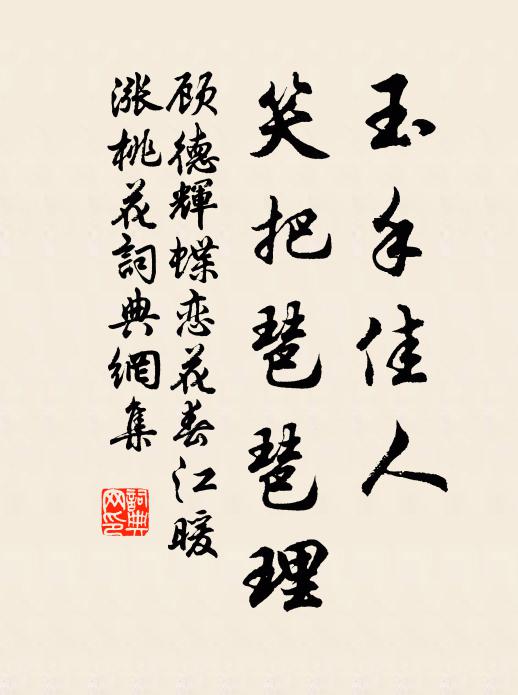 玉手佳人
笑把琶琶理
顾德輝蝶恋花春江暖
漲桃花詞典網集
詞典网印